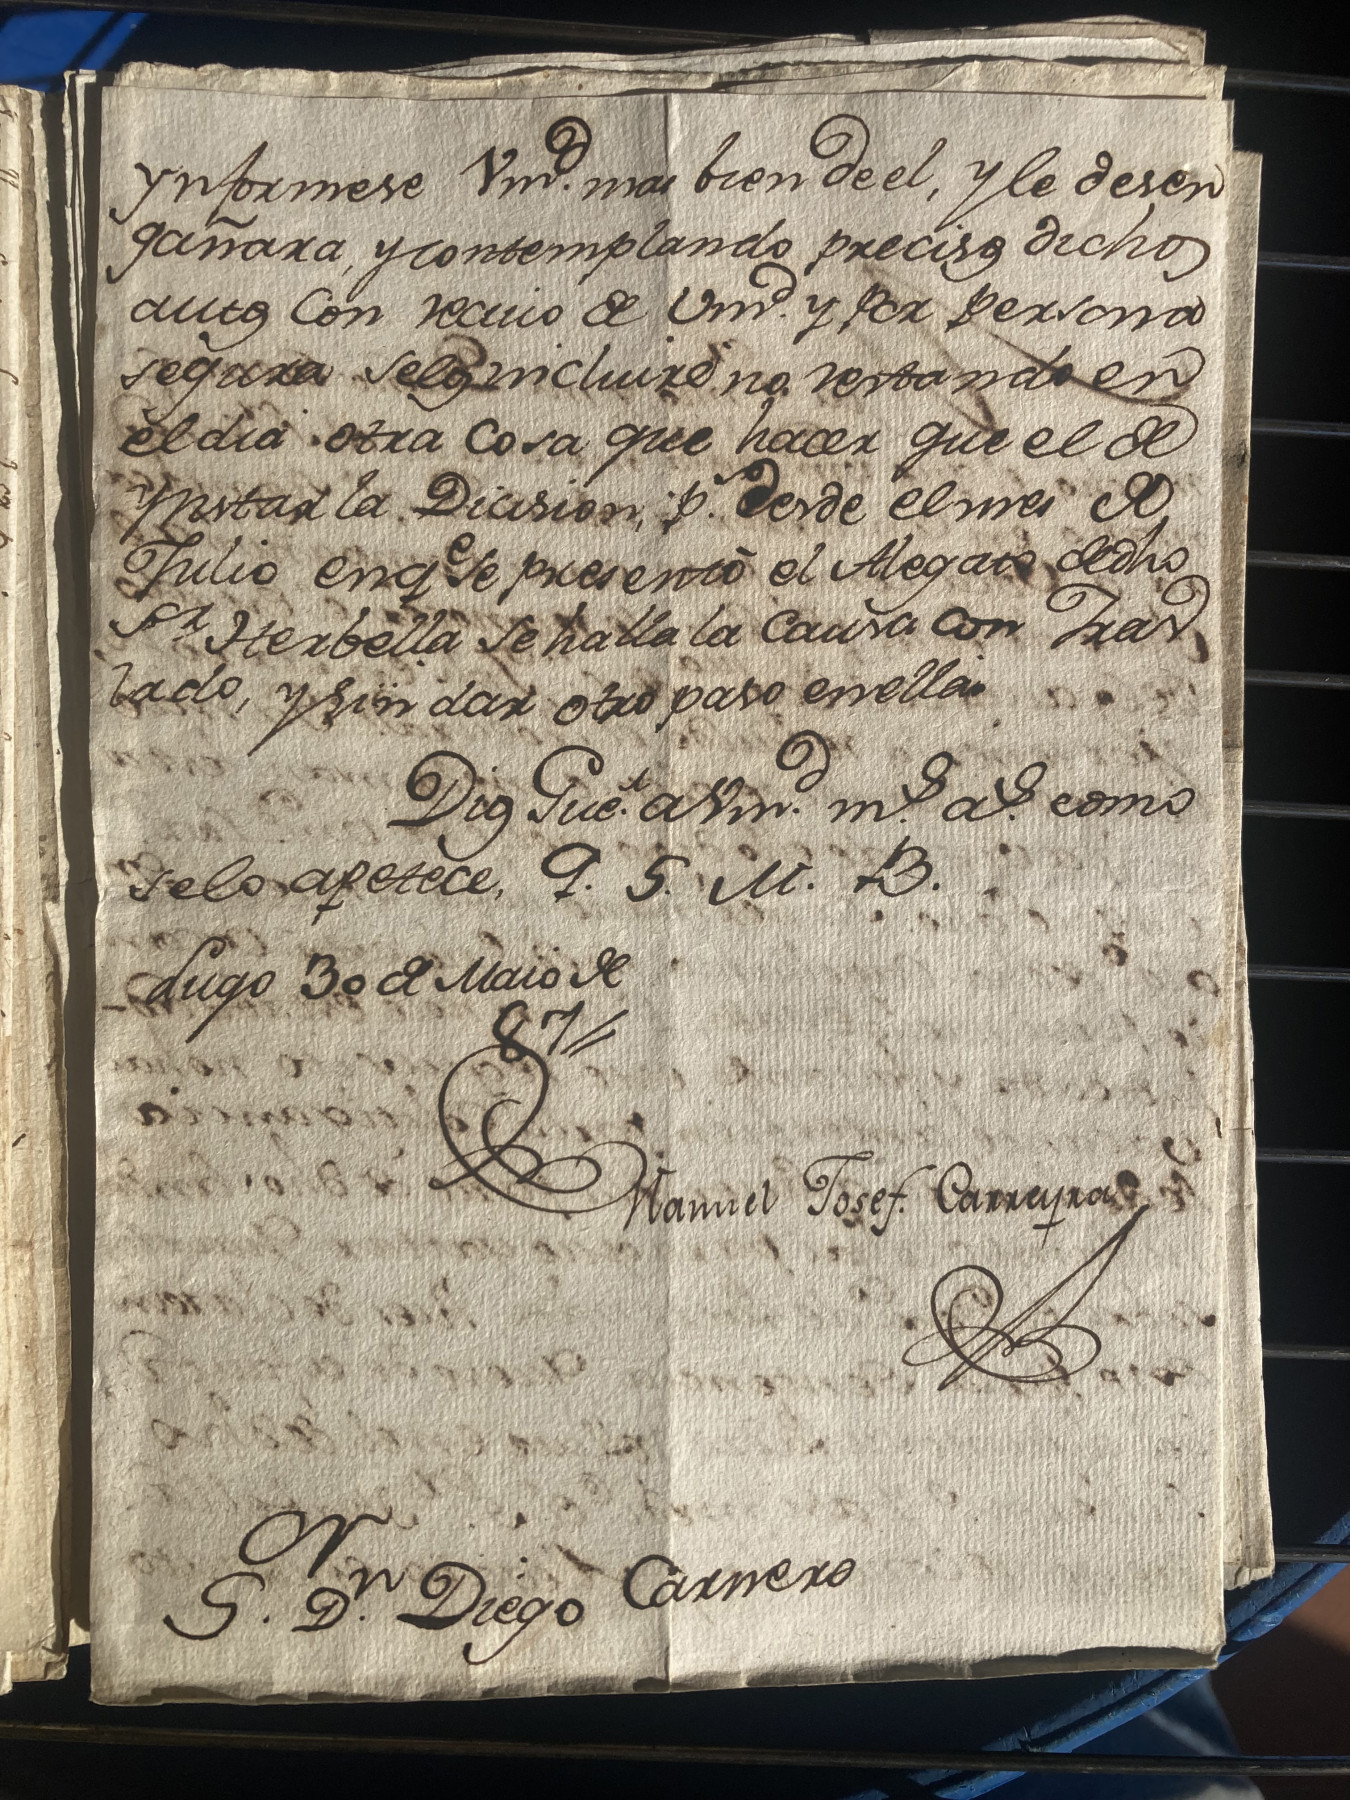 ynformese Vmd. mas bien de el, y le desen
gañara, y contemplando preciso dichos
autos Con reciuo de Vmd. y por persona
segura selos incluiré no restando en
el dia otra Cosa que hacer que el de
ynstar la Dicision, ps. desde el mes de
Julio en qe. se presentò el Alegato de dho
Sr. Herbella se halla la Causa con Tras
lado, y sin dar otro paso en ella.
Dios Gue. a Vmd. ms. as. como
selo apetece, Q. S. M. B.
Lugo 30 de Maio de
87
Manuel Josef. Carreyra
Sr. Dn. Diego Carnero